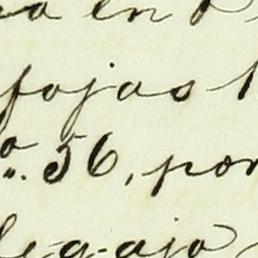 a en
fojas
o. 56, por
legajo